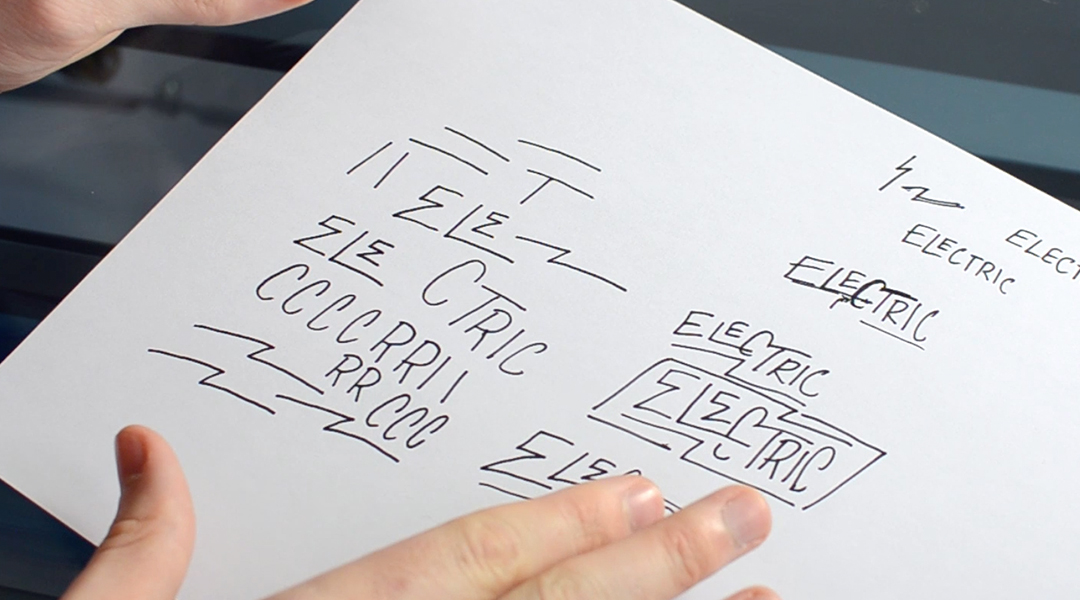 T
ELE
ELE CTRIC
CCCCRRII
RR CCC
ELECTRIC
ELECT
ELECTRIC
ELECTRIC
ELECTRIC
ELEC